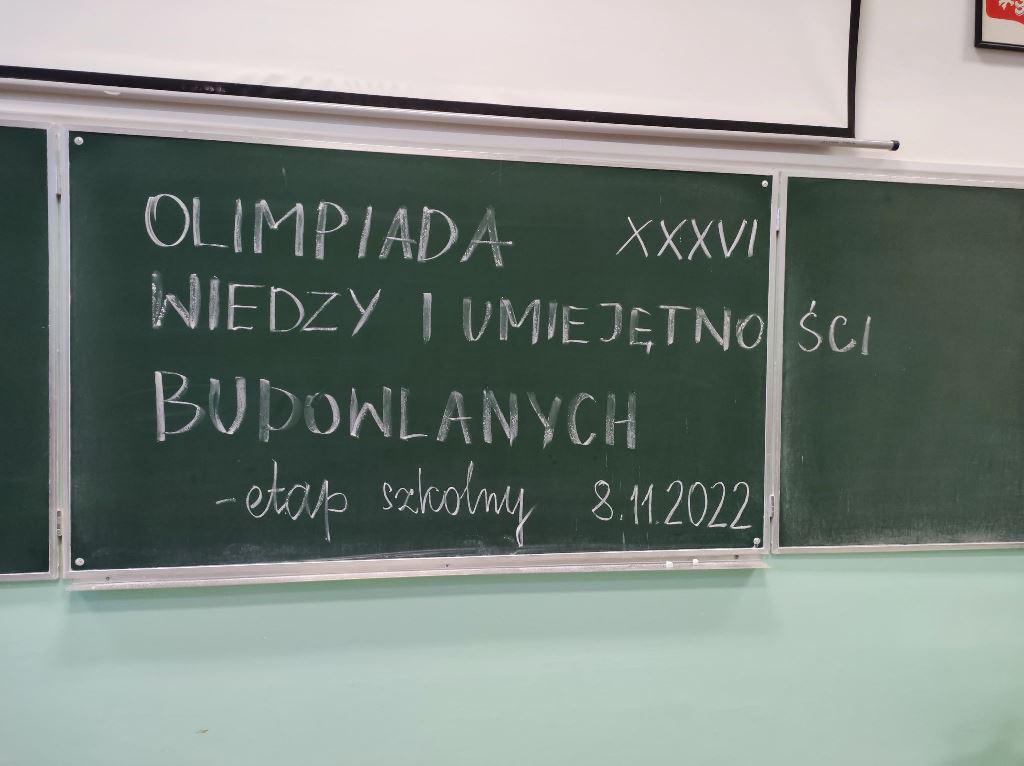 OLIMPIADA XXXVI
WIEDZY I UMIEJĘTNOŚCI
BUDOWLANYCH
-etap szkolny 8.11.2022